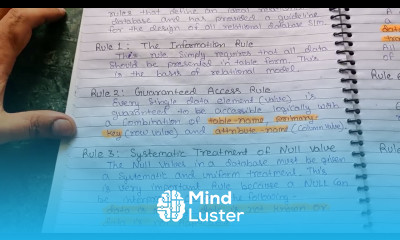 rules that define an ideal relational
database and has provided a guideline
for the design of all relational database sim
Rule 1: The Information Rule
This rule simply requires that all data
should be presented in table form. This
is the basis of relational model.
Rule 2: Guaranteed Access Rule
Every single data element (value) is
guaranteed to be accessible logically with
a combination of table-name, primary-
key (row value) and attribute-name (column value).
Rule 3: Systematic Treatment of Null Value
The Null Values in a database must be given
a systematic and uniform treatment. This
is very important Rule because a NULL can
be following:
data is known or
A
data
All
of
Rule
Mind
Luster